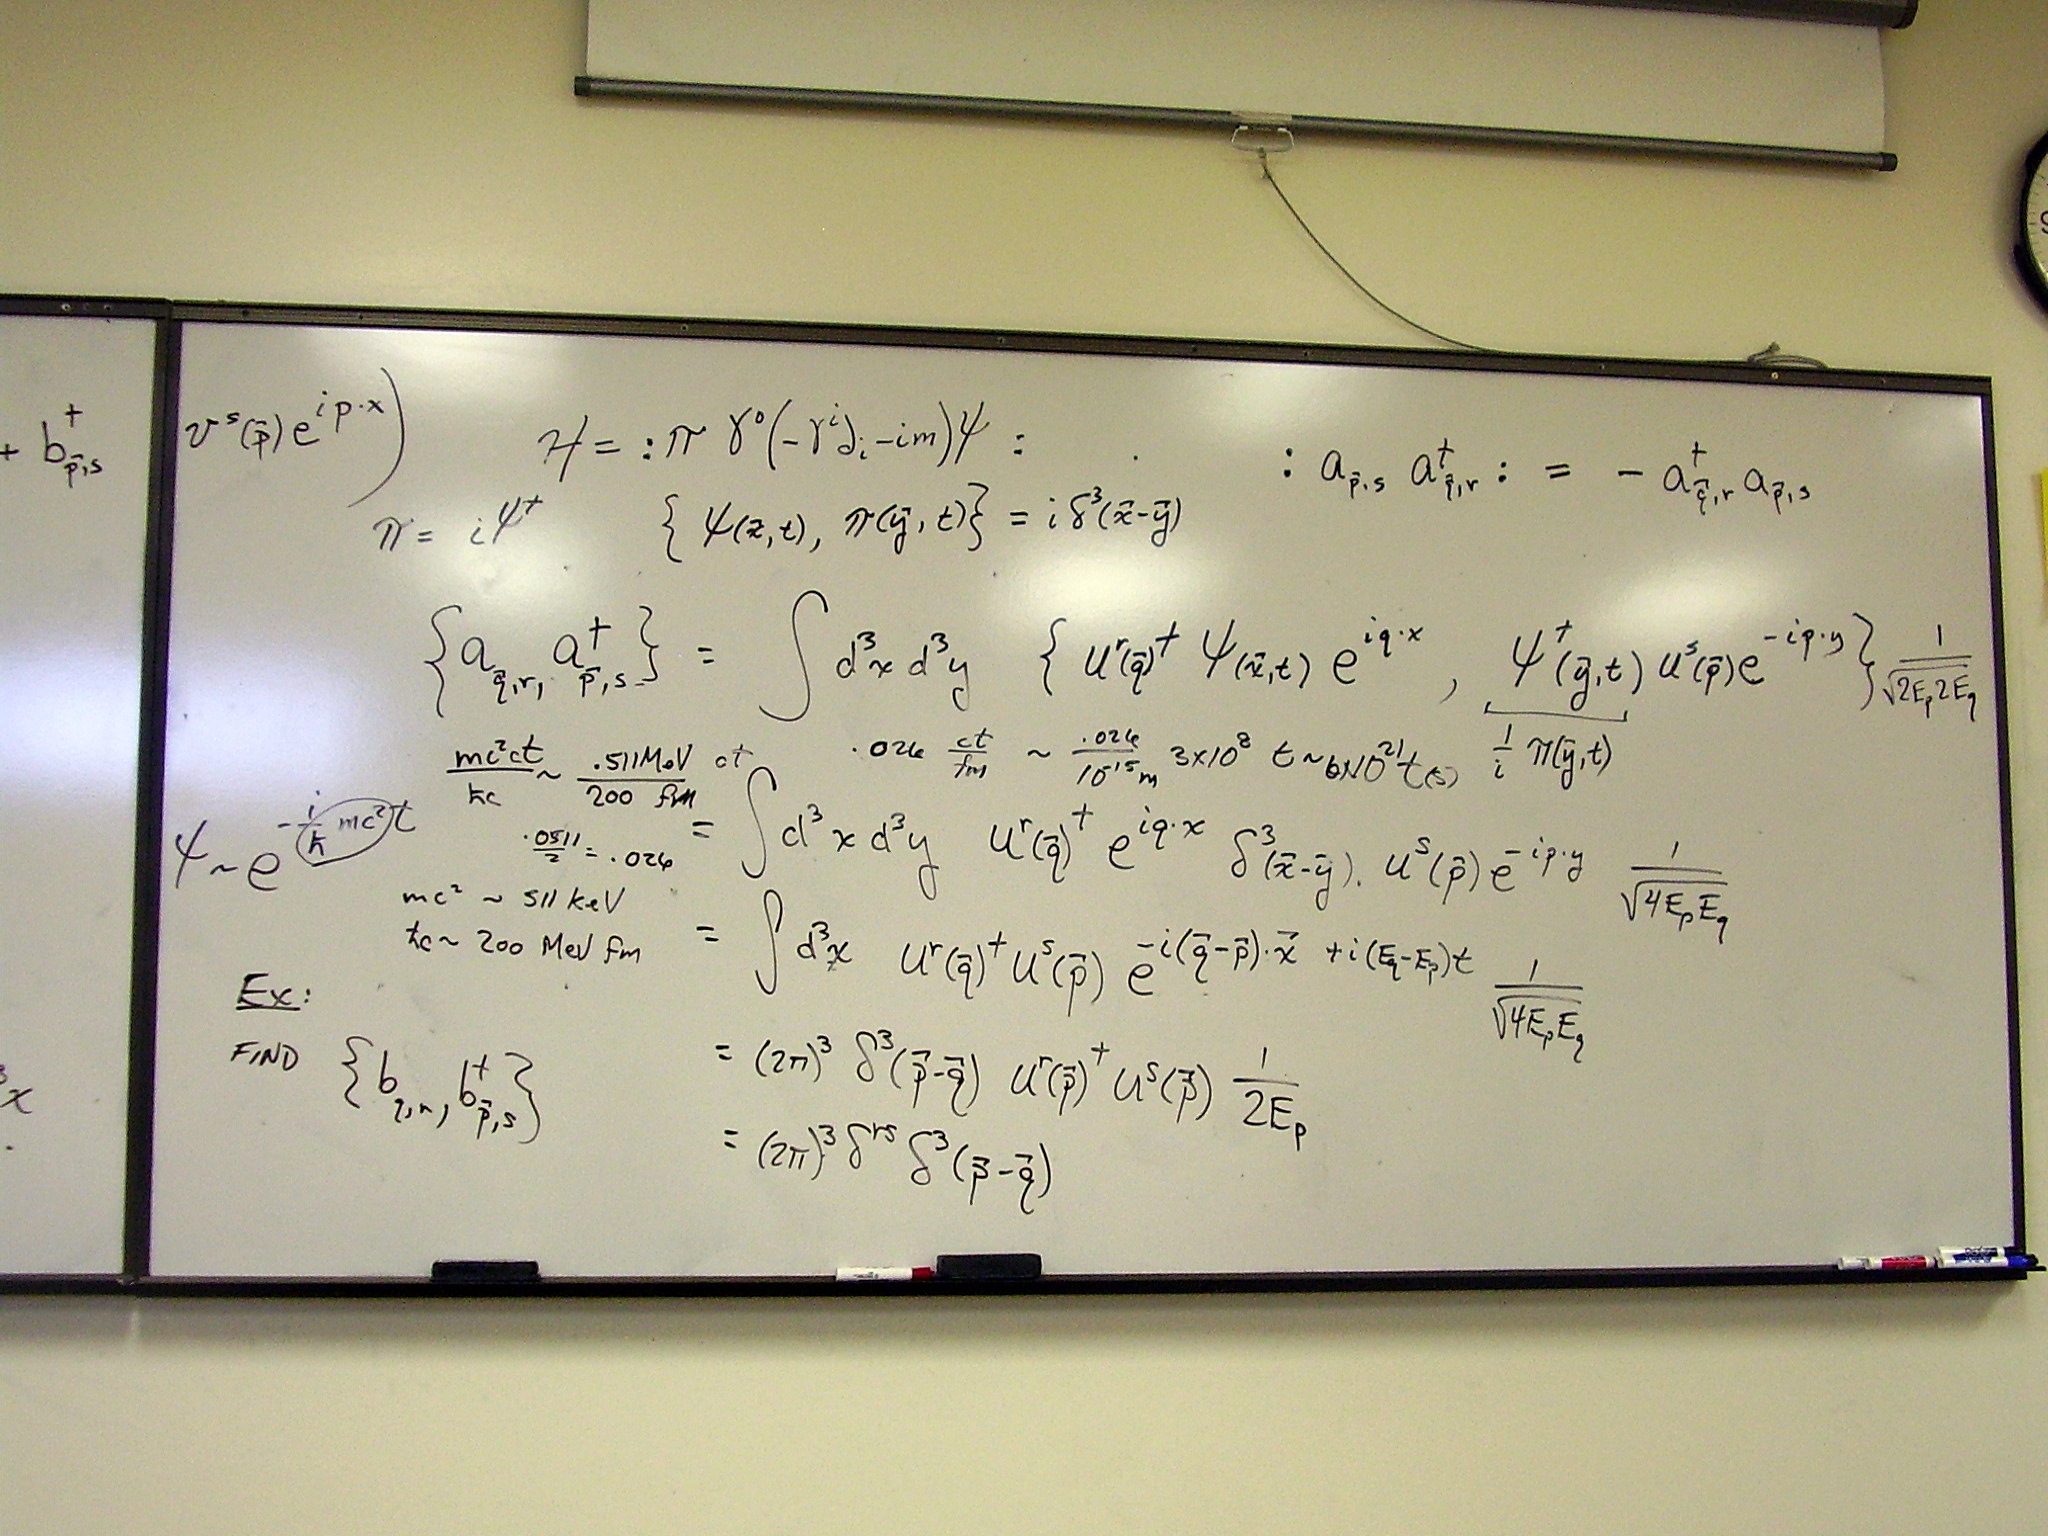 + b†_{p⃗,s} v^s(p⃗) e^{ip·x} )
ℋ = :π γ⁰(-γ^i ∂_i - im)ψ :
: a_{p⃗,s} a†_{q⃗,r} : = - a†_{q⃗,r} a_{p⃗,s}
π = iψ†
{ψ(x⃗,t), π(y⃗,t)} = i δ³(x⃗-y⃗)
{a_{q⃗,r}, a†_{p⃗,s}} = ∫ d³x d³y { u^r(q⃗)† ψ(x⃗,t) e^{iq·x}, ψ†(y⃗,t) u^s(p⃗) e^{-ip·y} } 1/√(2E_p 2E_q)
1/i π(y⃗,t)
mc²ct/ħc ~ .511 MeV/200 fm ct
.026 ct/fm ~ .026/10^{-15} m 3×10⁸ t ~ 6×10²¹ t(s)
ψ ~ e^{-i/ħ mc² t}
.0511/2 = .026
= ∫ d³x d³y u^r(q⃗)† e^{iq·x} δ³(x⃗-y⃗) . u^s(p⃗) e^{-ip·y} 1/√(4E_p E_q)
mc² ~ 511 keV
ħc ~ 200 MeV fm
= ∫ d³x u^r(q⃗)† u^s(p⃗) e^{-i(q⃗-p⃗)·x⃗ + i(E_q-E_p)t} 1/√(4E_p E_q)
Ex:
FIND {b_{q,r}, b†_{p⃗,s}}
= (2π)³ δ³(p⃗-q⃗) u^r(p⃗)† u^s(p⃗) 1/2E_p
= (2π)³ δ^{rs} δ³(p⃗-q⃗)
x